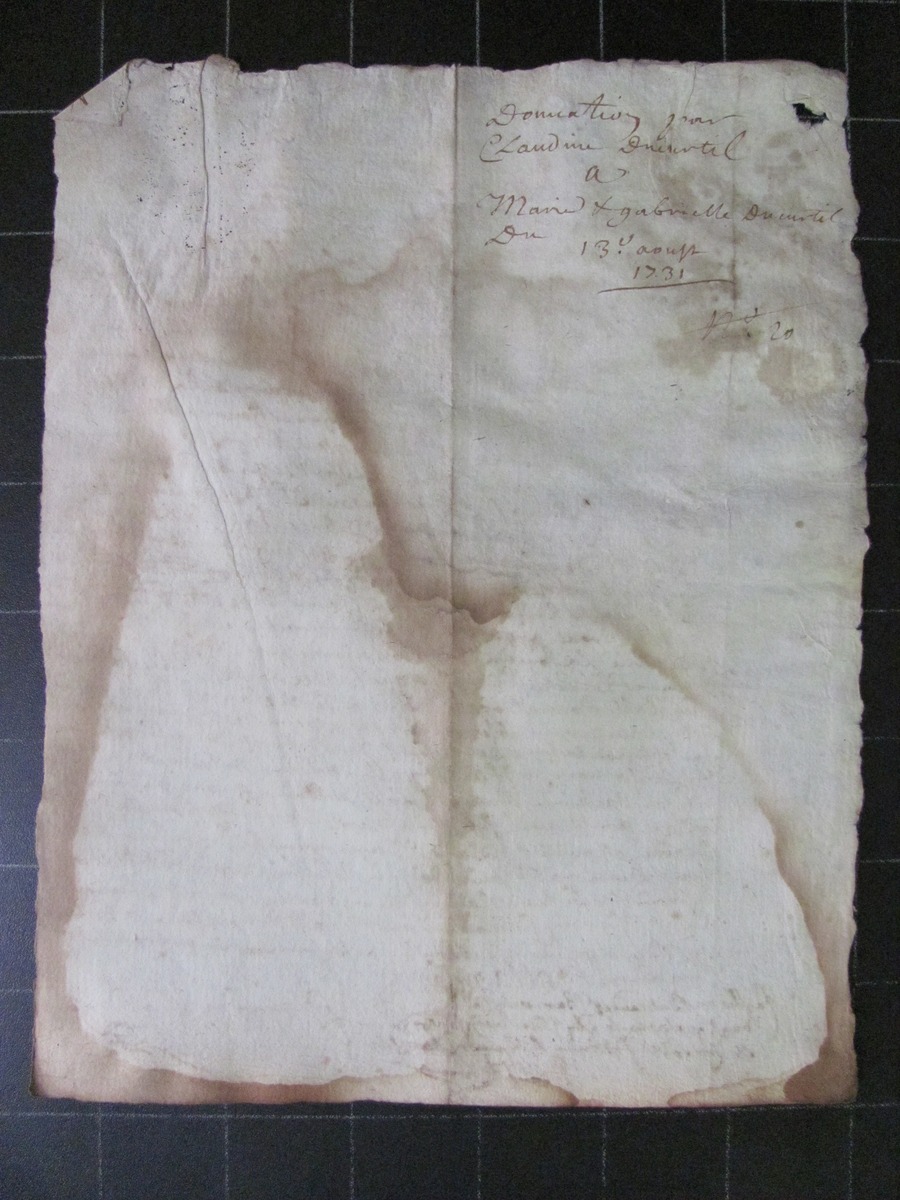 Donnation par
Claudine Ducurtil
a
Marie & gabrielle Ducurtil
Du 13.e aoust
1731
N.o 20